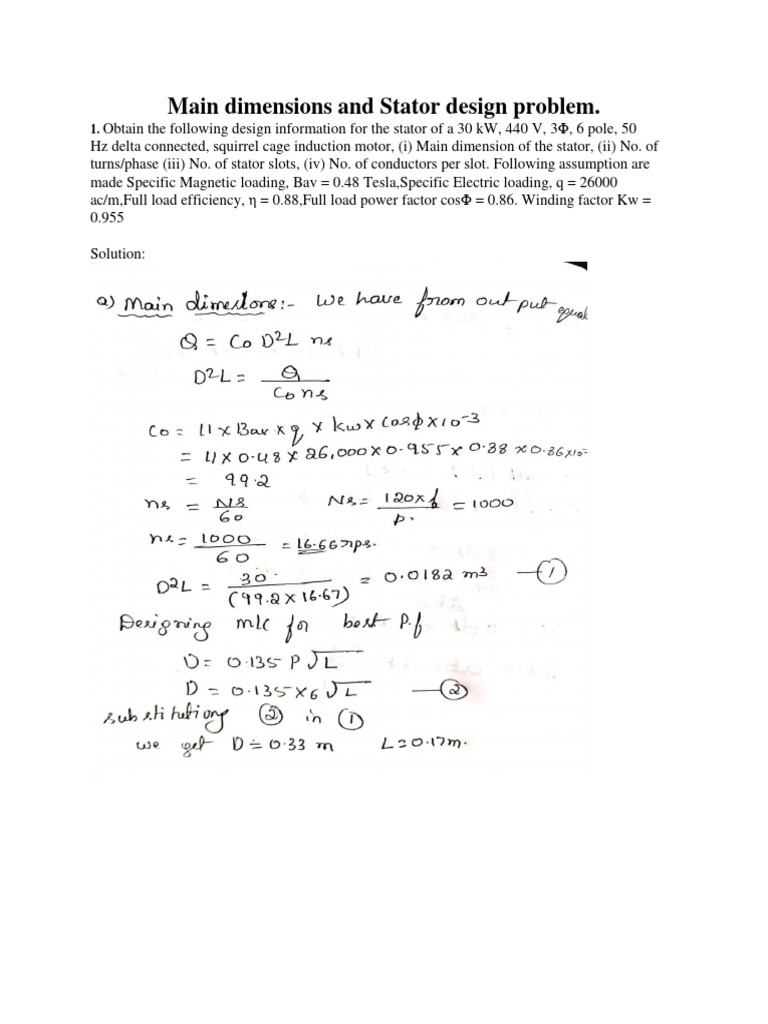 Main dimensions and Stator design problem.
1. Obtain the following design information for the stator of a 30 kW, 440 V, 3Φ, 6 pole, 50
Hz delta connected, squirrel cage induction motor, (i) Main dimension of the stator, (ii) No. of
turns/phase (iii) No. of stator slots, (iv) No. of conductors per slot. Following assumption are
made Specific Magnetic loading, Bav = 0.48 Tesla,Specific Electric loading, q = 26000
ac/m,Full load efficiency, η = 0.88,Full load power factor cosΦ = 0.86. Winding factor Kw =
0.955
Solution:
a) Main dimestons:- we have from out put equal
Q = Co D²L ns
D²L = Q / Co ns
Co = 11 x Bav x q x kw x cosϕ x 10⁻³
= 11 x 0.48 x 26,000 x 0.955 x 0.88 x 0.86 x 10⁻
= 99.2
ns = Ns / 60 Ns = 120 x f / p. = 1000
ns = 1000 / 60 = 16.66 rps.
D²L = 30 / (99.2 x 16.67) = 0.0182 m³ —①
Designing m/c for best P.f
D = 0.135 P √L
D = 0.135 x 6 √L —②
substituting ② in ①
we get D ≐ 0.33 m L = 0.17m.